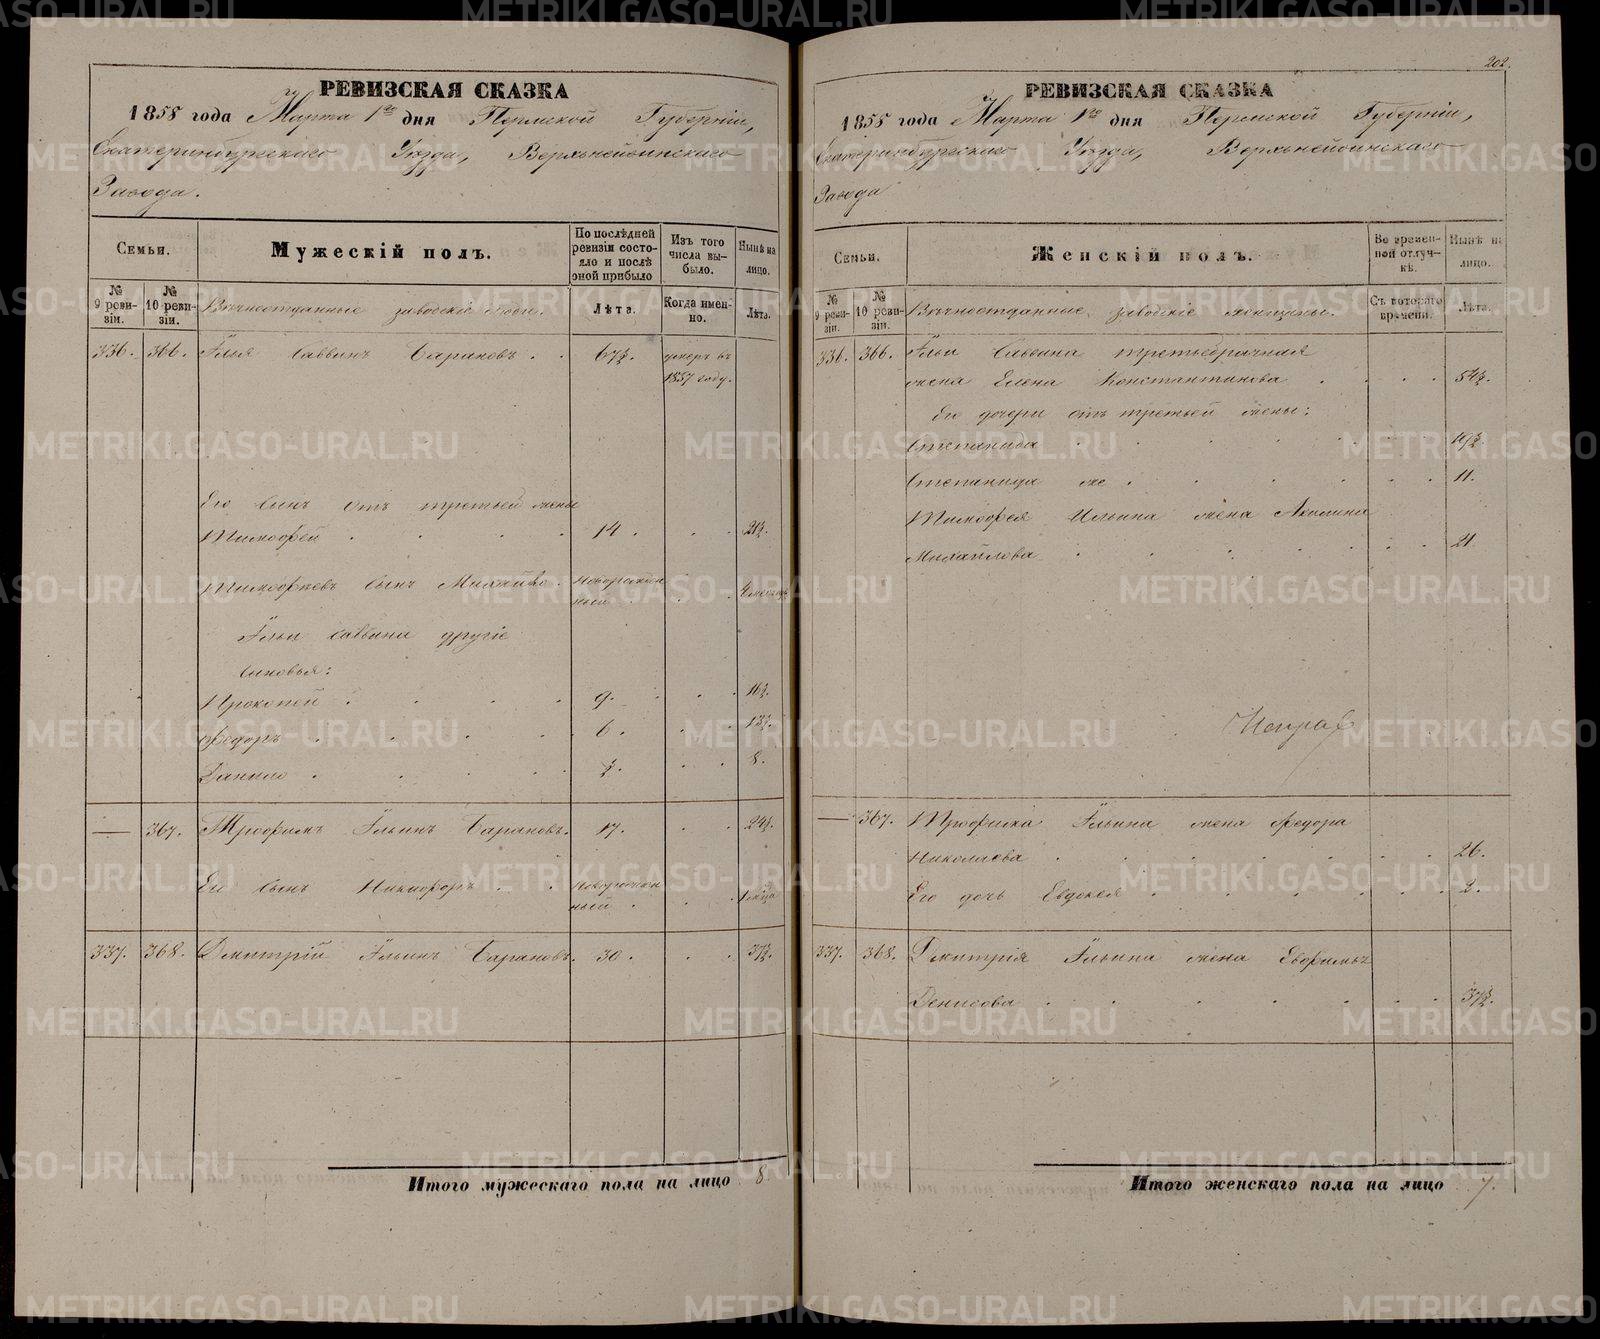 202.
РЕВИЗСКАЯ СКАЗКА
1858 года Марта 1го дня Пермской Губерніи,
Екатеринбургскаго Уѣзда, Верхнейвинскаго
Завода.
Семьи.
Мужескій полъ.
По послѣдней ревизіи состояло и послѣ оной прибыло
Изъ того числа выбыло.
Нынѣ на лицо.
№ 9 ревизіи.
№ 10 ревизіи.
Вѣчноотданные заводскіе люди.
Лѣта.
Когда именно.
Лѣта.
336. 366. Илья Саввинъ Барановъ . . 67½. умеръ въ
1857 году.
Его Сынъ отъ третьей жены
Тимофей . . . . 14 . . . 21½.
Тимофеевъ сынъ Михайло . новорожден
ный . . .
Ильи Саввина другіе
сыновья:
Прокопей . . . . 9. . . 16½.
Федоръ . . . . 6 . . . 13½.
Данило . . . . ½. . . 8.
— 367. Трофимъ Ильинъ Барановъ. 17. . . 24½.
Его сынъ Никифоръ . . новорожден
ный . . .
337. 368. Дмитрій Ильинъ Барановъ. 30 . . . 37½.
Итого мужескаго пола на лицо 8.
РЕВИЗСКАЯ СКАЗКА
1858 года Марта 1го дня Пермской Губерніи,
Екатеринбургскаго Уѣзда, Верхнейвинскаго
Завода
Семьи.
Женскій полъ.
Во временной отлучкѣ.
Нынѣ на лицо.
№ 9 ревизіи.
№ 10 ревизіи.
Вѣчноотданные заводскіе женщины.
Съ котораго времени.
Лѣта.
336. 366. Ильи Саввина третьебрачная
жена Елена Константинова . . . . 54½.
Его дочери отъ третьей жены:
Степанида . . . . . . . 19½.
Степанида же . . . . . . . 11.
Тимофея Ильина жена Акилина
Михайлова . . . . . . . 21.
— 367. Трофима Ильина жена Федора
Николаева . . . . . . . 26.
Его дочь Евдокея . . . . . . . 2.
337. 368. Дмитрія Ильина жена Евфимья
Денисова . . . . . . . 37½.
Итого женскаго пола на лицо 7.
METRIKI.GASO-URAL.RU